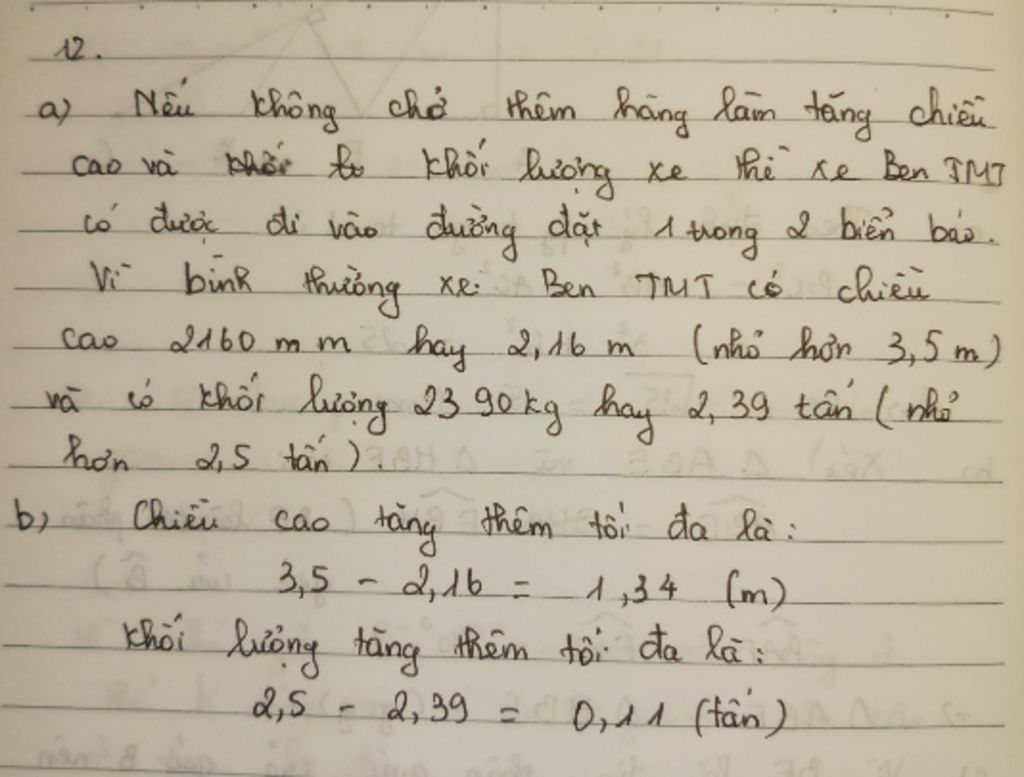 12.
a) Nếu không chở thêm hàng làm tăng chiều
cao và khối lượng xe thì xe Ben TMT
có được đi vào đường đặt 1 trong 2 biển báo.
Vì bình thường xe Ben TMT có chiều
cao 2160 mm hay 2,16 m (nhỏ hơn 3,5 m)
và có khối lượng 2390 kg hay 2,39 tấn (nhỏ
hơn 2,5 tấn).
b) Chiều cao tăng thêm tối đa là:
3,5 - 2,16 = 1,34 (m)
Khối lượng tăng thêm tối đa là:
2,5 - 2,39 = 0,11 (tấn)